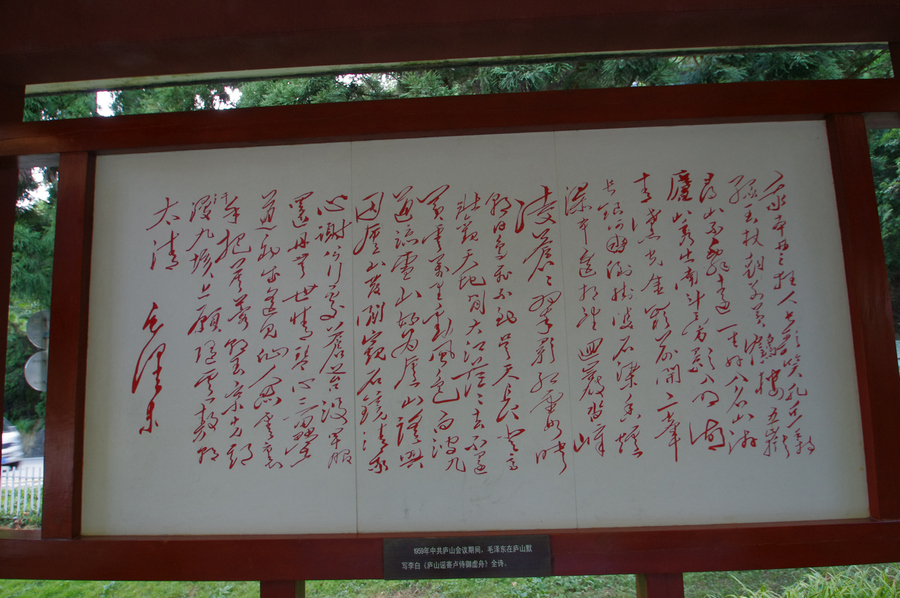 我本楚狂人凤歌笑孔丘手持
绿玉杖朝别黄鹤楼五嶽
尋仙不辞遠一生好入名山游
廬山秀出南斗旁影入明湖
青黛光金闕前開二峯
长銀河倒掛三石梁香爐
瀑布遥相望迴崖沓嶂
凌蒼蒼翠影红霞映
朝日鸟飞不到吴天长登高
壮觀天地间大江茫茫去不還
黄雲万里動風色白波九
道流雪山好为廬山謡興
因廬山发闲窺石鏡清我
心謝公行处蒼苔没早服
還丹無世情琴心三叠
道初成遥见仙人彩雲裏
手把芙蓉朝玉京先期汗
漫九垓上願接盧敖游
太清
毛泽东
1959年中共庐山会议期间,毛泽东在庐山默
写李白《庐山谣寄卢侍御虚舟》全诗。